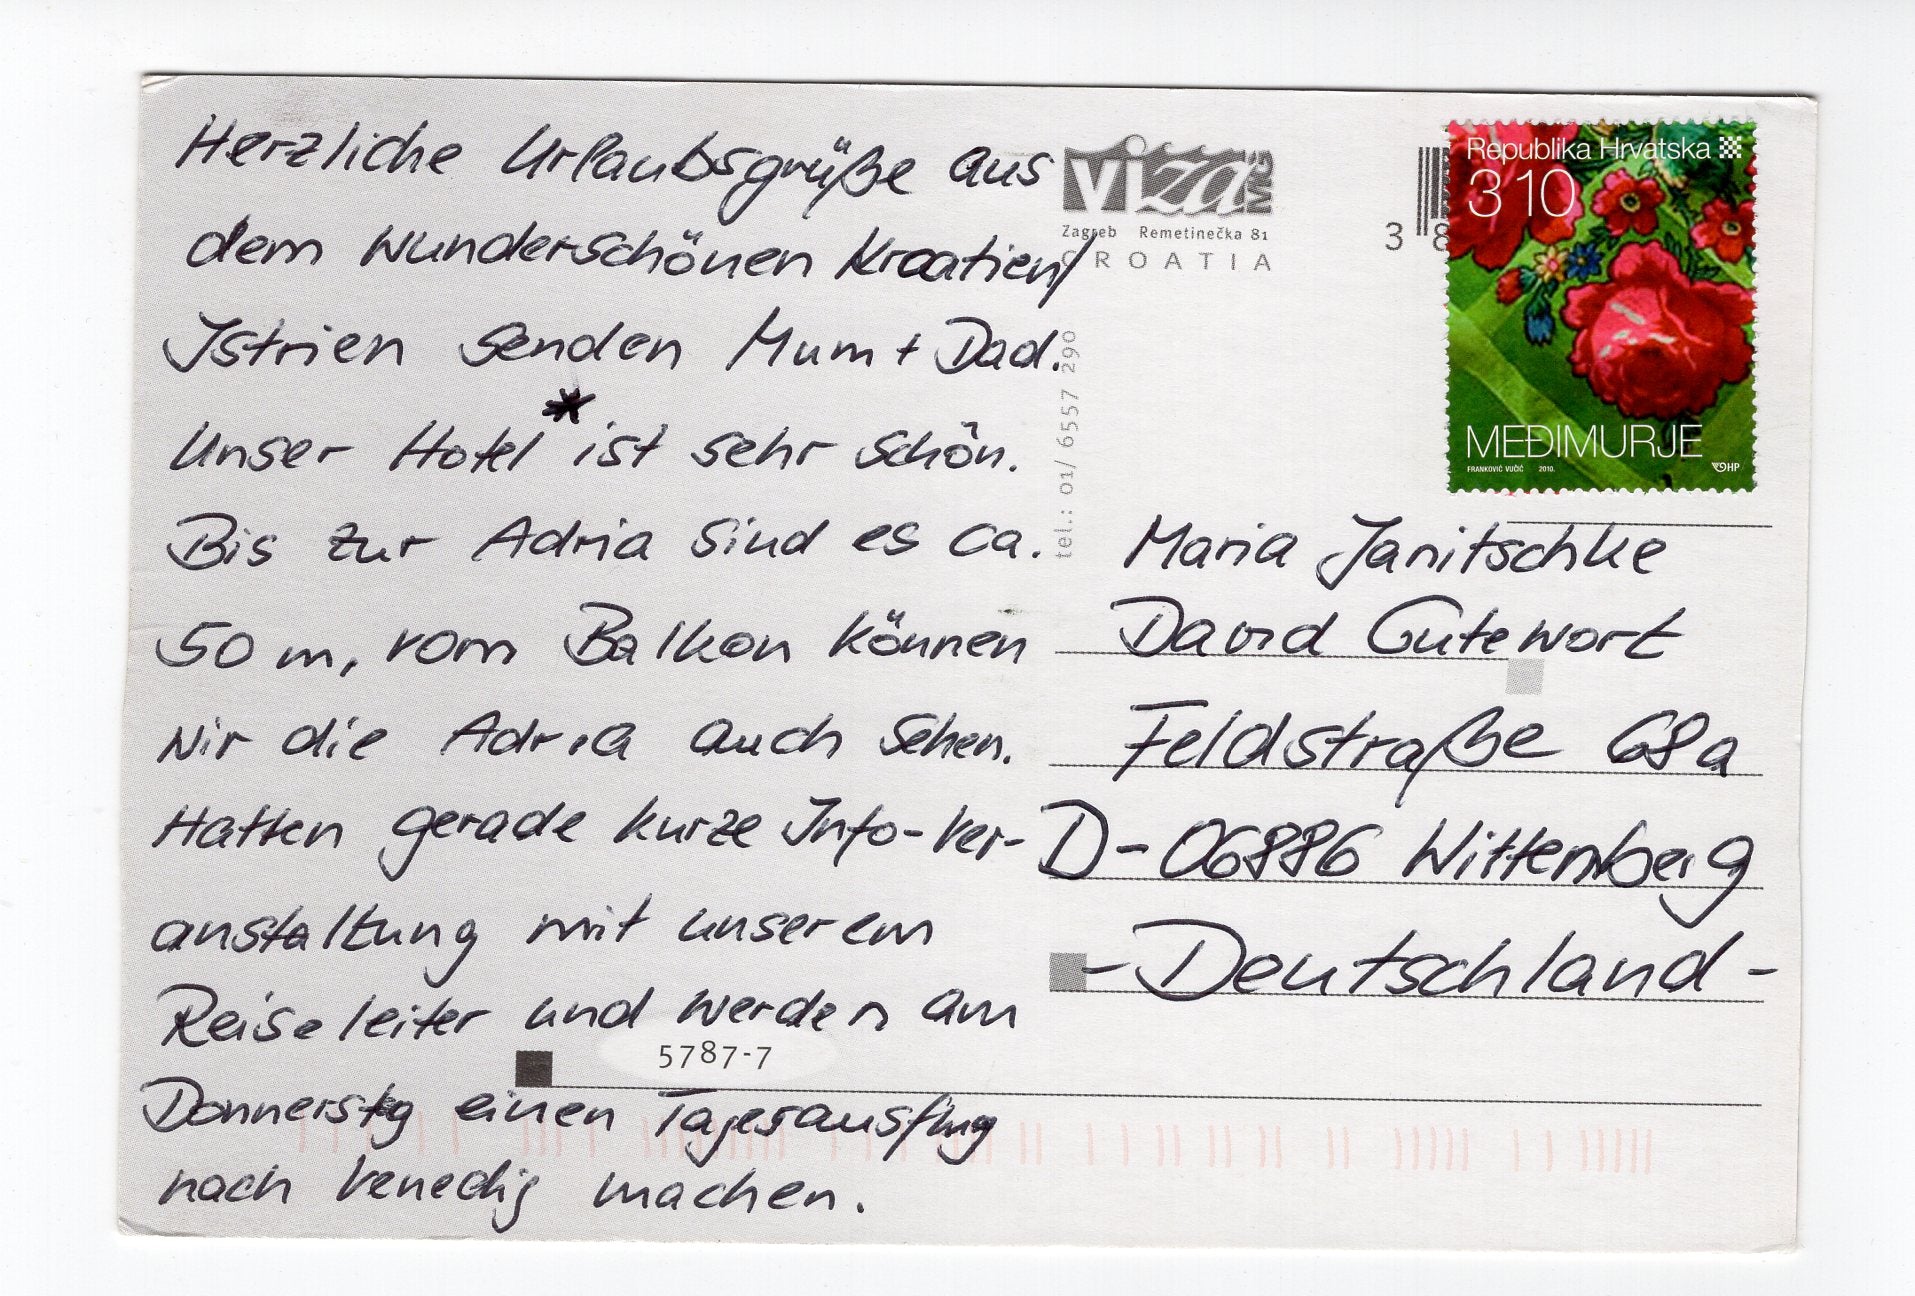 Herzliche Urlaubsgrüße aus
dem wunderschönen Kroatien/
Istrien senden Mum + Dad.
Unser Hotel * ist sehr schön.
Bis zur Adria sind es ca.
50 m, vom Balkon können
wir die Adria auch sehen.
Hatten gerade kurze Info-Ver-
anstaltung mit unserem
Reiseleiter und werden am
Donnerstag einen Tagesausflug
nach Venedig machen.
viza MG
Zagreb Remetinečka 81
CROATIA
tel.: 01/ 6557 290
3 8
Republika Hrvatska
3 10
MEĐIMURJE
FRANKOVIĆ VUČIĆ 2010. HP
Maria Janitschke
David Gutewort
Feldstraße 68a
D-06886 Wittenberg
- Deutschland -
5787-7